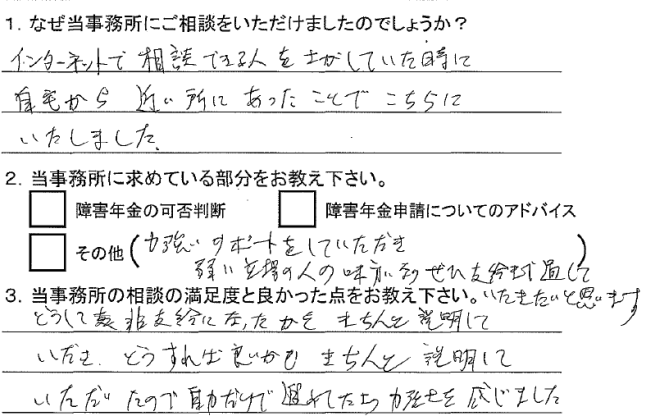 1. なぜ当事務所にご相談をいただけましたのでしょうか?
インターネットで 相談できる人を さがしていた時に
自宅から 近い所に あったことで こちらに
いたしました。
2. 当事務所に求めている部分をお教え下さい。
障害年金の可否判断 障害年金申請についてのアドバイス
その他 (力強いサポートをしていただき
弱い立場の人の味方になりぜひ支給まで通して)
3. 当事務所の相談の満足度と良かった点をお教え下さい。いただきたいと思います
どうして 非支給になったかを きちんと 説明して
いただき、どうすれば良いかも きちんと 説明して
いただいたので 自分だけで 力強さを 感じました